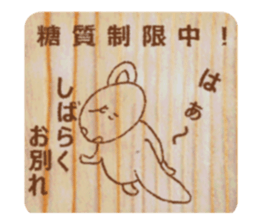 糖質制限中!
はぁ〜
しばらく
お別れ